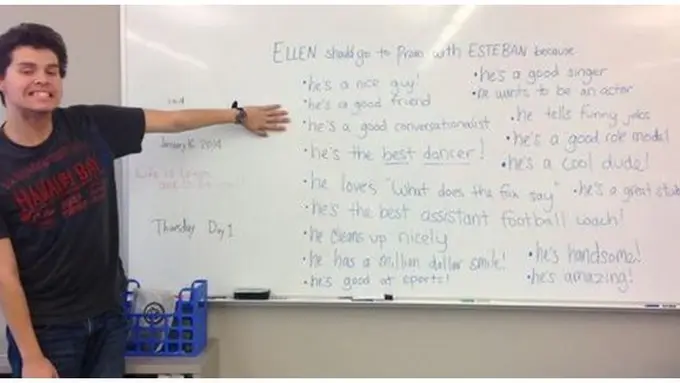 ELLEN should go to Prom with ESTEBAN because
• he's a nice guy!
• he's a good friend
• he's a good conversationalist
• he's the best dancer!
• he loves "What does the fox say"
• he's the best assistant football coach!
• he cleans up nicely
• he has a million dollar smile!
• he's good at sports!
• he's a good singer
• he wants to be an actor
• he tells funny jokes
• he's a good role model
• he's a cool dude!
• he's a great
• he's handsome!
• he's amazing!
January 16 2014
Thursday Day 1
HAWAII BAY